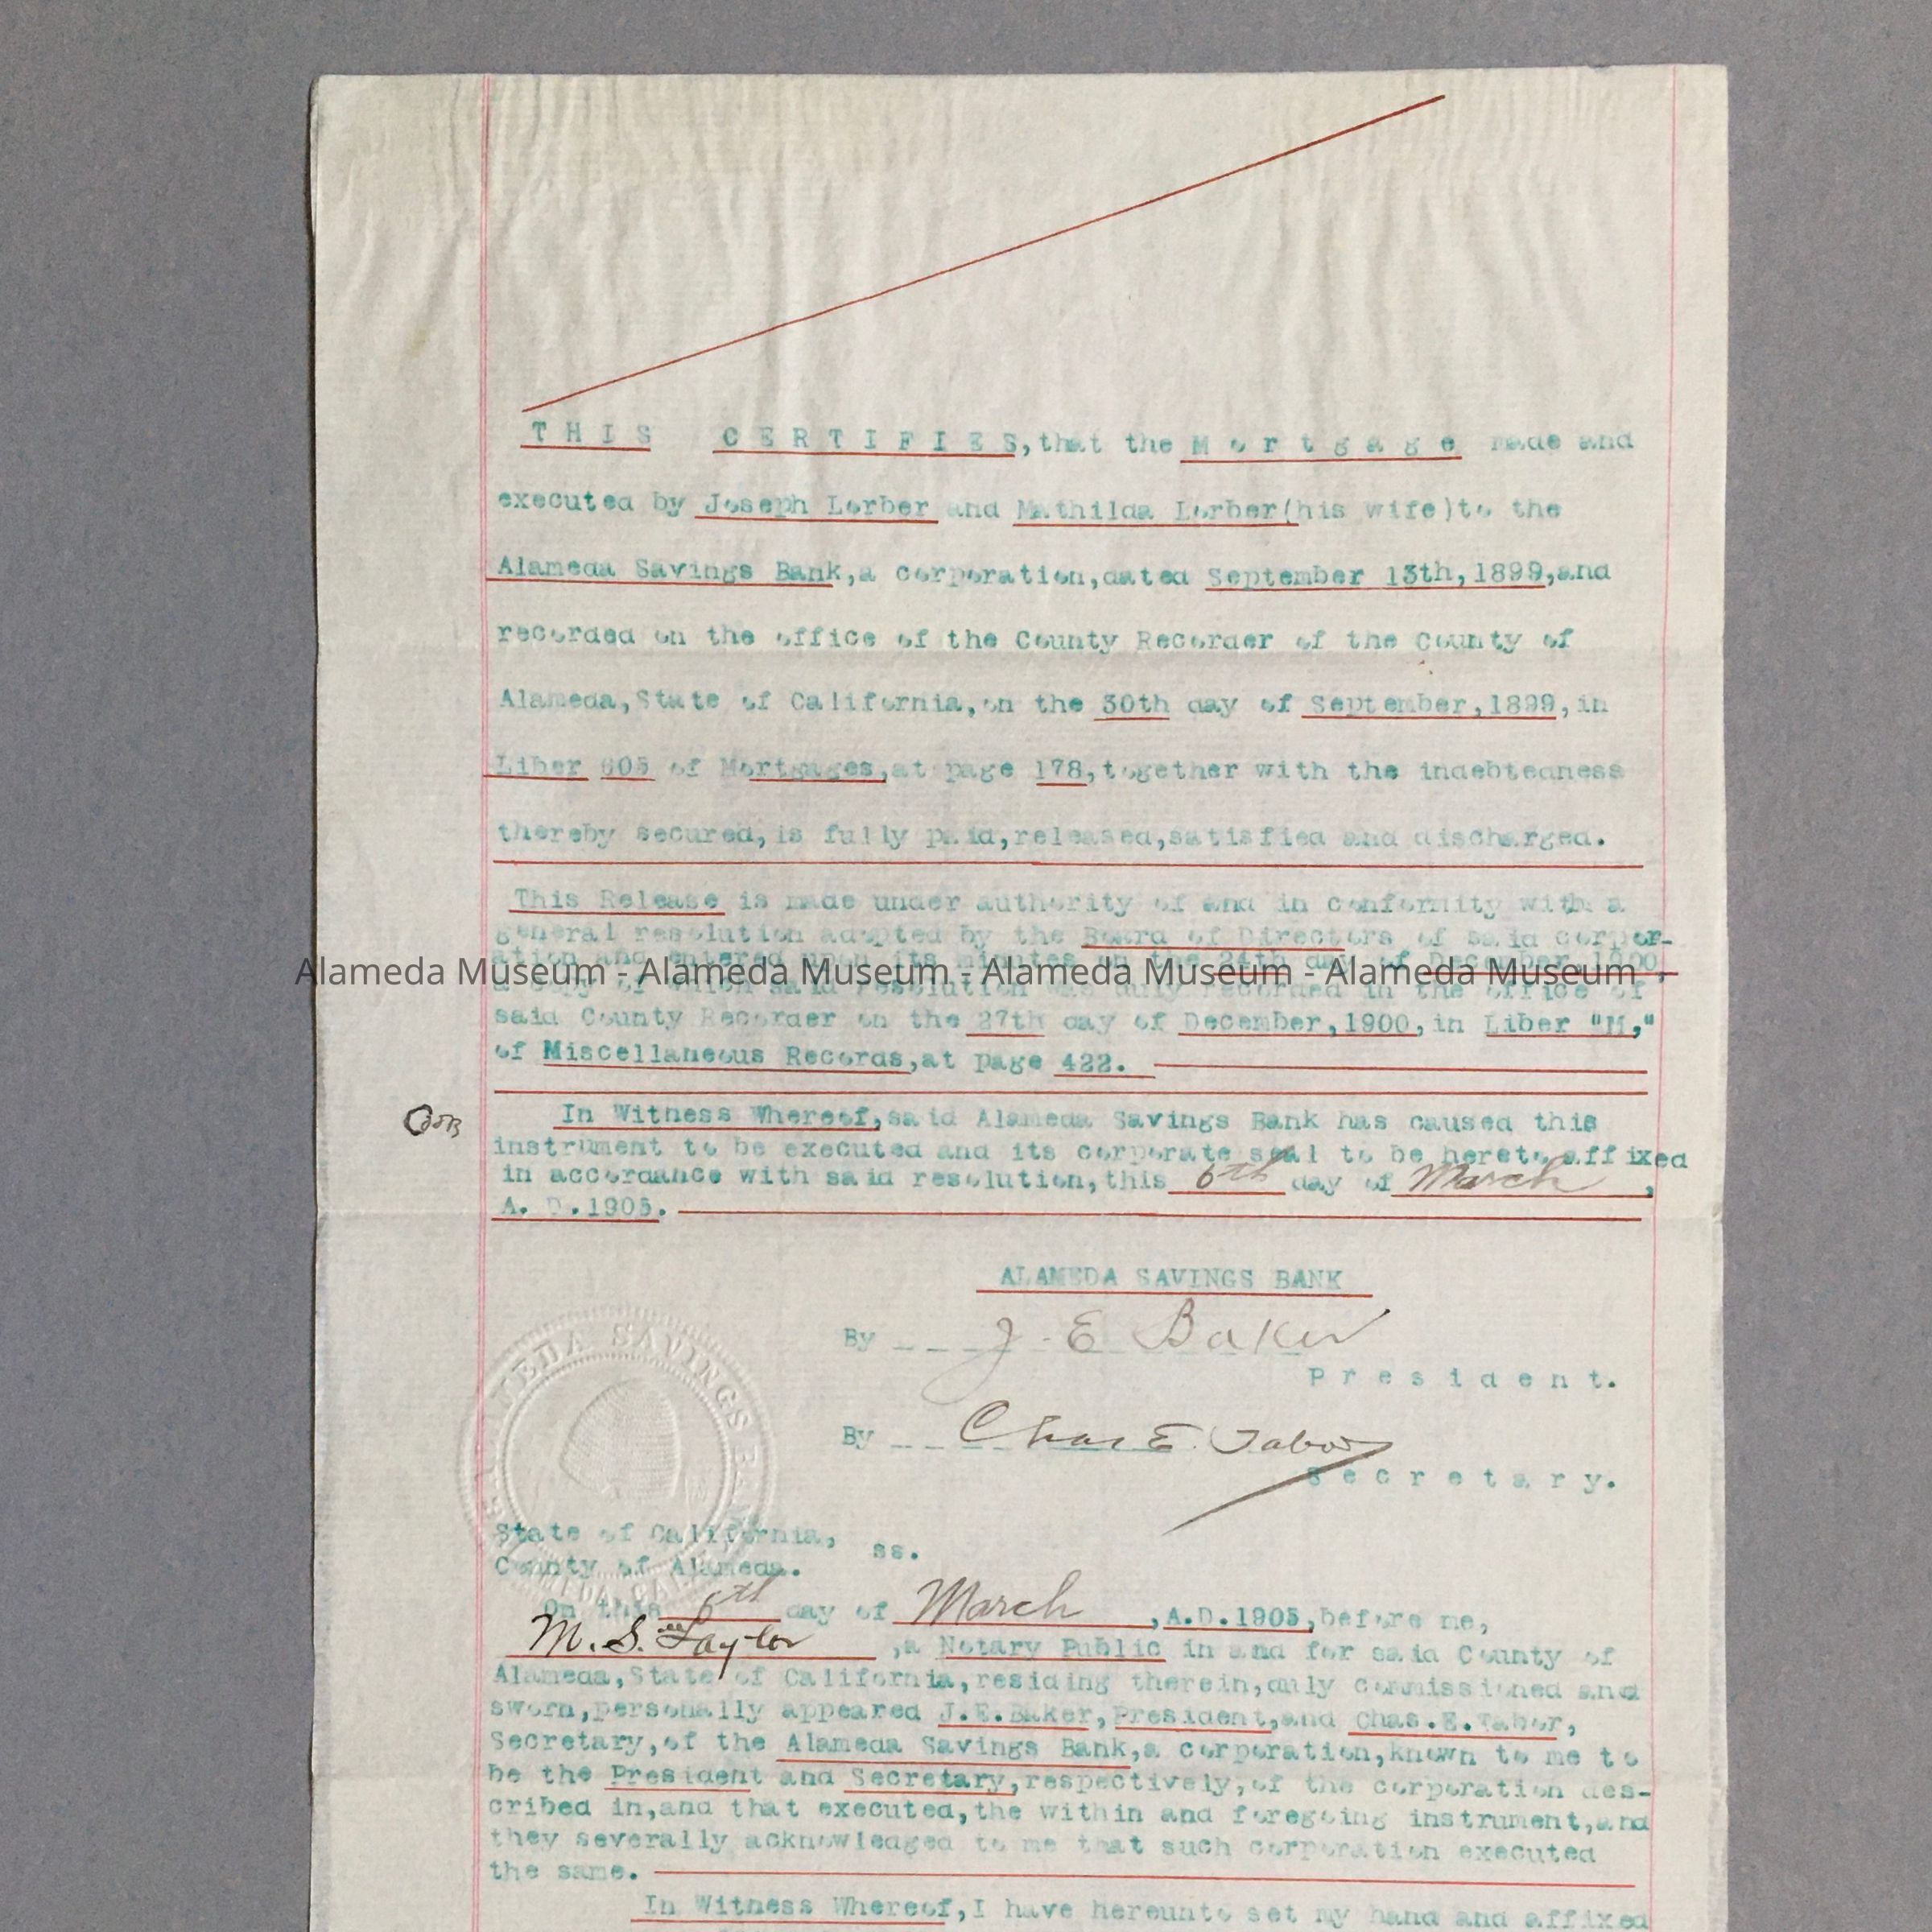 THIS CERTIFIES, that the Mortgage made and
executed by Joseph Lorber and Mathilda Lorber(his wife)to the
Alameda Savings Bank,a corporation,dated September 13th,1899,and
recorded on the office of the County Recorder of the County of
Alameda,State of California,on the 30th day of September,1899,in
Liber 605 of Mortgages,at page 178,together with the indebtedness
thereby secured,is fully paid,released,satisfied and discharged.
This Release is made under authority of and in conformity with a
general resolution adopted by the Board of Directors of said corpor-
ation and entered upon its minutes on the 24th day of December,1900,
Alameda Museum - Alameda Museum - Alameda Museum - Alameda Museum
a copy of which said resolution was duly recorded in the office of
said County Recorder on the 27th day of December,1900,in Liber "M,"
of Miscellaneous Records,at page 422.
In Witness Whereof,said Alameda Savings Bank has caused this
instrument to be executed and its corporate seal to be hereto affixed
in accordance with said resolution,this 6th day of March,
A. D.1905.
ALAMEDA SAVINGS BANK
By J. E. Baker
President.
By Chas E. Tabor
Secretary.
ALAMEDA SAVINGS BANK
State of California,
ss.
County of Alameda.
On this 6th day of March,A.D.1905,before me,
M. S. Taylor,a Notary Public in and for said County of
Alameda,State of California,residing therein,duly commissioned and
sworn,personally appeared J.E.Baker,President,and Chas.E.Tabor,
Secretary,of the Alameda Savings Bank,a corporation,known to me to
be the President and Secretary,respectively,of the corporation des-
cribed in,and that executed,the within and foregoing instrument,and
they severally acknowledged to me that such corporation executed
the same.
In Witness Whereof,I have hereunto set my hand and affixed